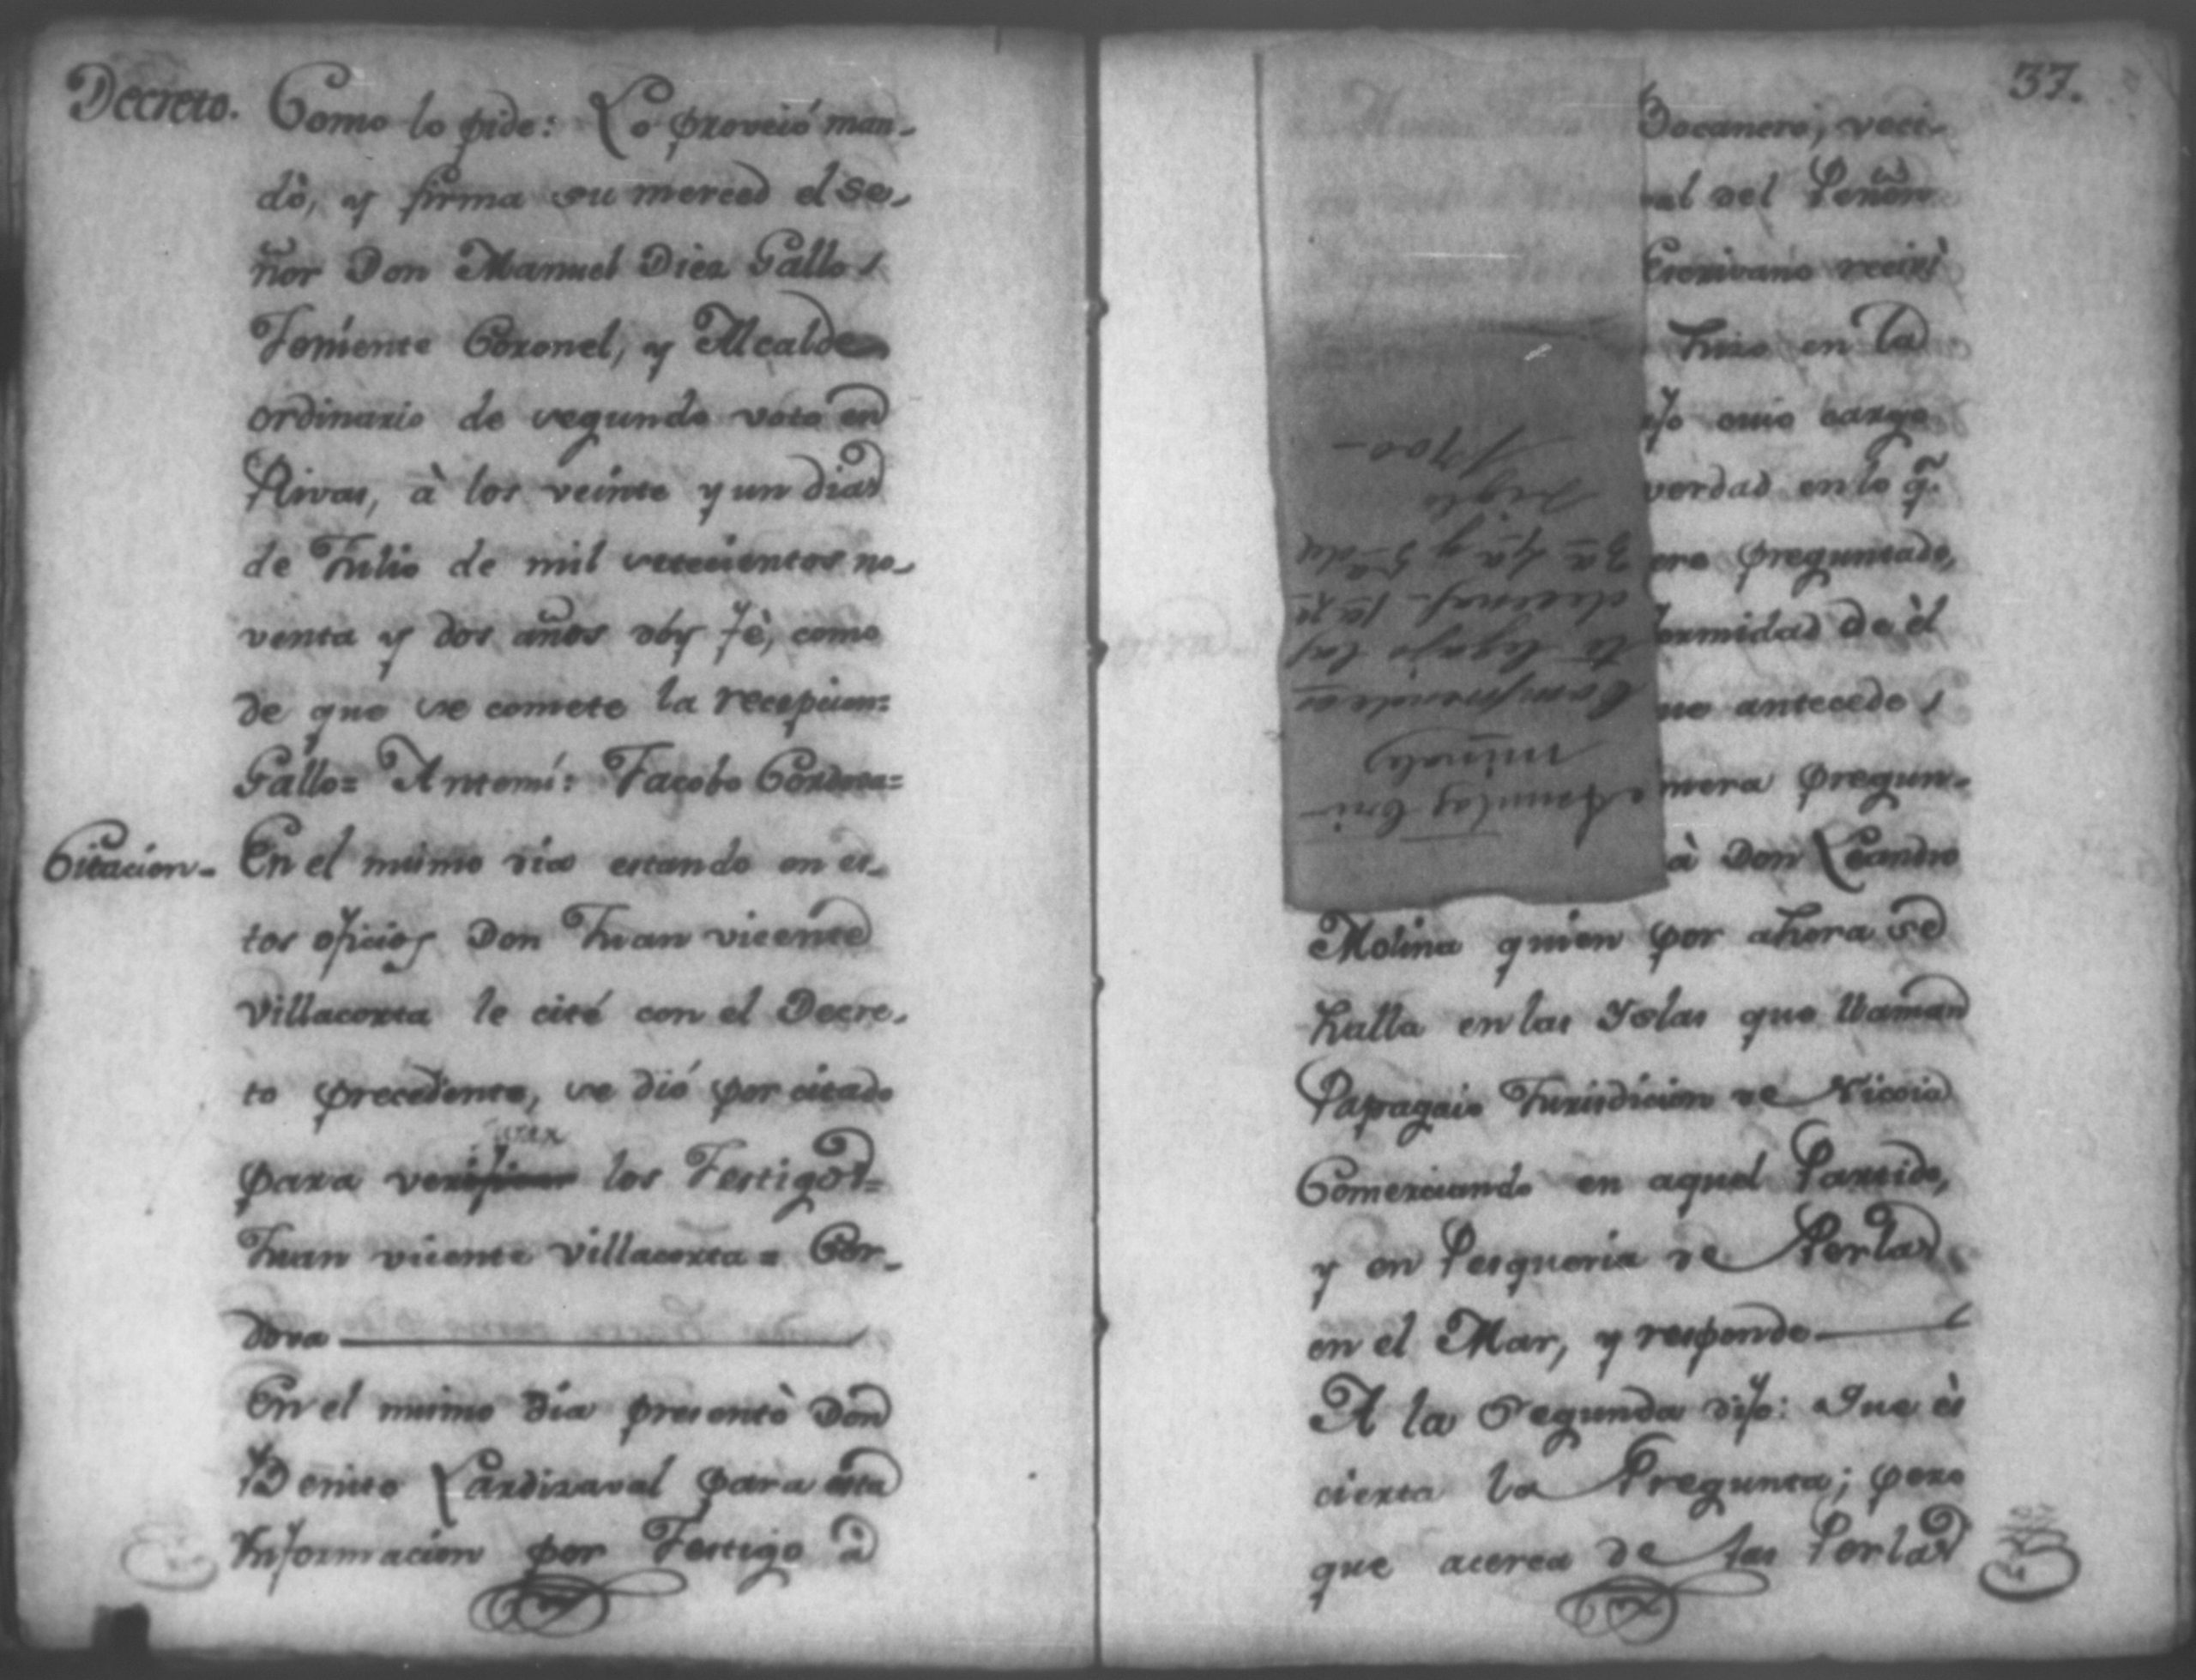 Decreto. Como lo pide: Lo proveió man-
dò, y firma su merced el Se-
ñor Don Manuel Diez Gallo
Teniente Coronel, y Alcalde
ordinario de segundo voto en
Rivas, à los veinte y un dias
de Julio de mil setecientos no-
venta y dos años doy fè, como
de que se comete la recepcion=
Gallo= Antemi: Jacobo Cordova=
Citacion- En el mismo dia estando en es-
tos oficios Don Juan vicente
Villacorta le cité con el Decre-
to precedente, se dió por citado
para los Testigos=
Juan vicente villacorta= Cor-
dova
En el mismo dia presentò Don
Benito Lardizaval para esta
Informacion por Testigo à
37.
Bocanera, veci-
del Señor
Escrivano recivi
hizo en la
cuio cargo
verdad en lo q.
ere preguntado,
ormidad de èl
ue antecede
mera pregun-
à Don Leandro
Molina quien por ahora se
halla en las Yslas que llaman
Papagaio Jurisdicion de Nicoia
Comerciando en aquel Partido,
y en Pesqueria de Perlas
en el Mar, y responde
A la Segunda dijo: Que ès
cierta la Pregunta; pero
que acerca de las Perlas
minales
Comprende es
te legajo las
3a 4a y 5a del
siglo
1700-